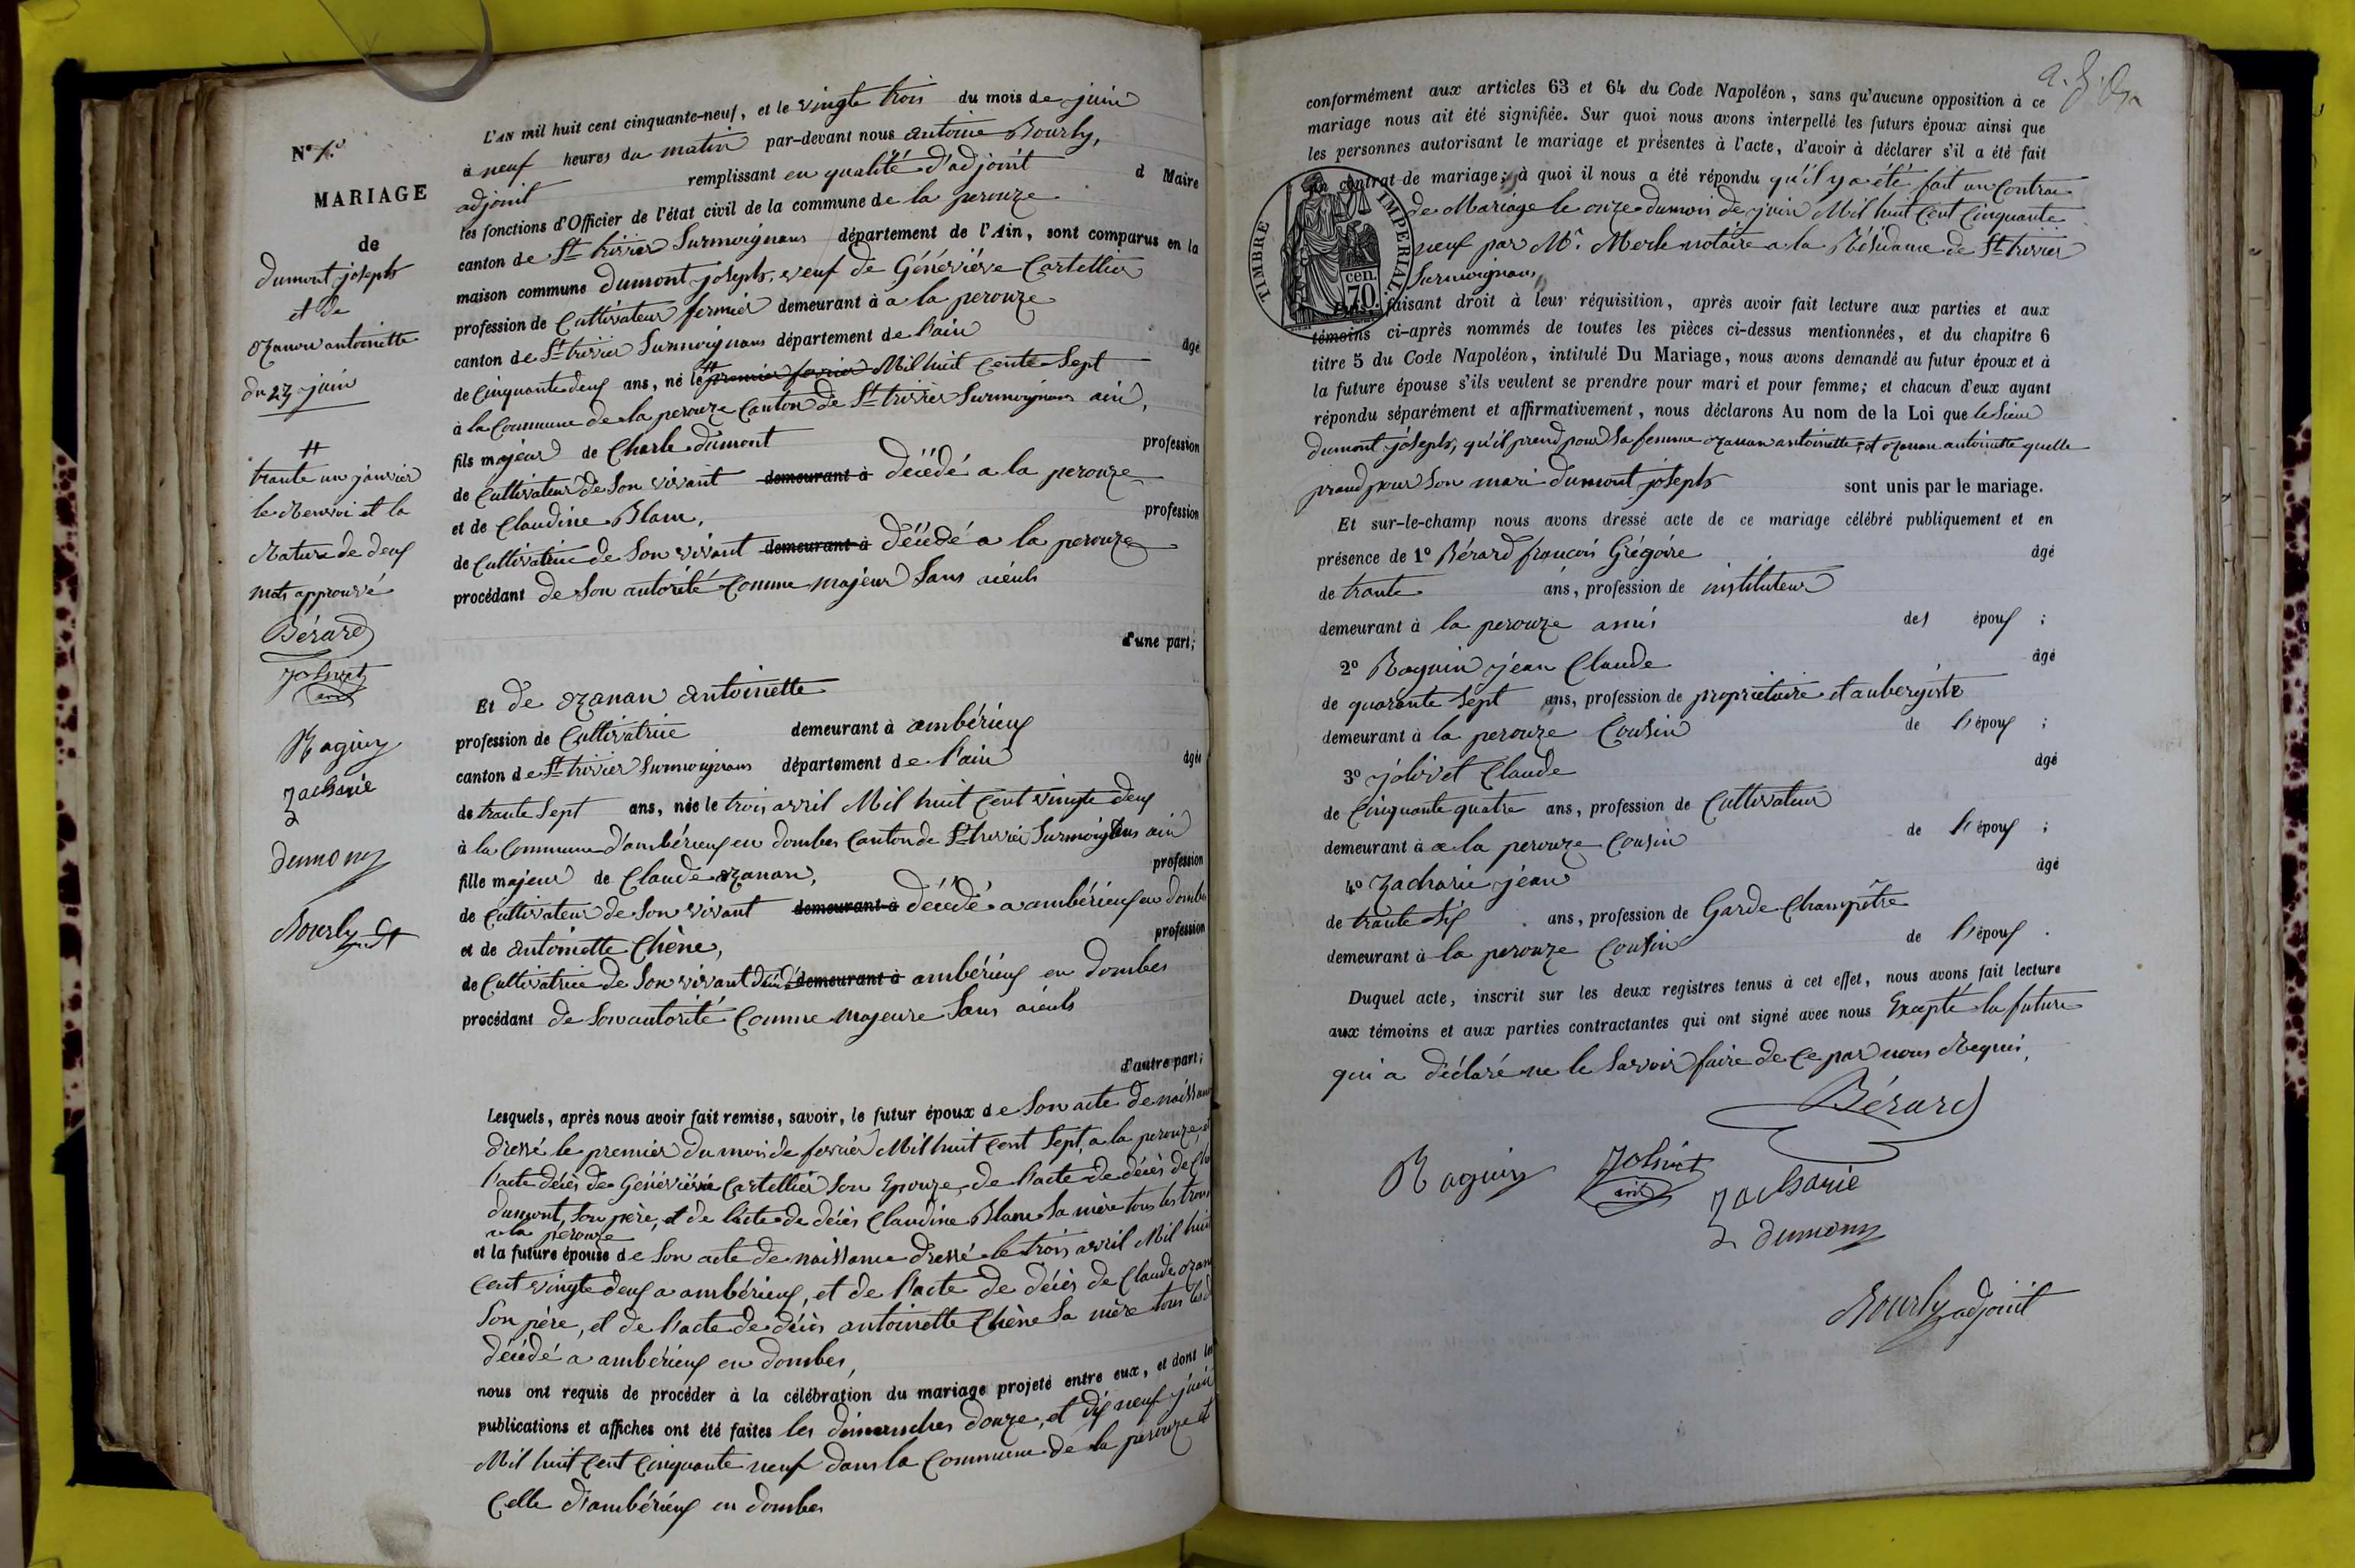 N° 1er
MARIAGE
de
dumont joseph
et de
ozanon antoinette
du 23 juin
#
trante un janvier
le Renvoi et la
Rature de deux
mots approuvé
Bérard
Jolivet
Raguin
Zacharie
dumont
Bourly adt
L'AN mil huit cent cinquante-neuf, et le vingte trois du mois de juin
à neuf heures du matin par-devant nous antoine Bourly,
adjoint remplissant en qualité d'adjoint d Maire
les fonctions d'Officier de l'état civil de la commune de la perouze
canton de St trivier Surmoignans département de l'Ain, sont comparus en la
maison commune dumont joseph, veuf de Génévième Cartellier
profession de Cultivateur fermier demeurant à a la perouze
canton de St trivier Surmoignans département de l'ain âgé
de Cinquante deux ans, né le # premier fevrier Mil huit Cente Sept
à la Commune de la perouze Canton de St trivier Surmoignans ain,
fils majeur de Charle dumont profession
de Cultivateur de Son vivant demeurant à décédé a la perouze
et de Claudine Blanc, profession
de Cultivatrice de Son vivant demeurant à décédé a la perouze
procédant de Son autorité Comme majeur Sans aieuls
d'une part;
Et de ozanon antoinette
profession de Cultivatrice demeurant à ambérieux
canton de St trivier Surmoignans département de l'ain âgée
de trante Sept ans, née le trois avril Mil huit Cent vingte deux
à la Commune d'ambérieux en dombes Canton de St trivier Surmoignans ain
fille majeur de Claude ozanon, profession
de Cultivateur de Son vivant demeurant à décédé a ambérieux en dombes
et de antoinette Chêne, profession
de Cultivatrice de Son vivant décédé demeurant à ambérieux en dombes
procédant de Son autorité Comme majeure Sans aieuls
d'autre part;
Lesquels, après nous avoir fait remise, savoir, le futur époux de Son acte de naissance
dressé le premier du mois de fevrier Mil huit Cent Sept, a la perouze, et
l'acte décès de Génévième Cartellier Son Epouze, de l'acte de décès de
dumont, Son père, et de l'acte de décès Claudine Blanc Sa mère tous les trois
a la perouze
et la future épouse de Son acte de naissance dressé le trois avril Mil huit
Cent vingte deux a ambérieux, et de l'acte de décès de Claude ozanon
Son père, et de l'acte de décès antoinette Chêne Sa mère tous les
décédé a ambérieux en dombes,
nous ont requis de procéder à la célébration du mariage projeté entre eux, et dont les
publications et affiches ont été faites les dimanches douze, et dix neuf juin
Mil huit Cent Cinquante neuf dans la Commune de la perouze et
Celle d'ambérieux en dombes
conformément aux articles 63 et 64 du Code Napoléon, sans qu'aucune opposition à ce
mariage nous ait été signifiée. Sur quoi nous avons interpellé les futurs époux ainsi que
les personnes autorisant le mariage et présentes à l'acte, d'avoir à déclarer s'il a été fait
un contrat de mariage; à quoi il nous a été répondu qu'il y a été fait un Contrat
de Mariage le onze du mois de juin Mil huit Cent Cinquante
neuf par Mr. Merle notaire a la Résidance de St trivier
Surmoignans,
TIMBRE IMPERIAL.
cen.
70.
faisant droit à leur réquisition, après avoir fait lecture aux parties et aux
témoins ci-après nommés de toutes les pièces ci-dessus mentionnées, et du chapitre 6
titre 5 du Code Napoléon, intitulé Du Mariage, nous avons demandé au futur époux et à
la future épouse s'ils veulent se prendre pour mari et pour femme; et chacun d'eux ayant
répondu séparément et affirmativement, nous déclarons Au nom de la Loi que le Sieur
dumont joseph, qu'il prend pour Sa femme ozanon antoinette, et ozanon antoinette quelle
prand pour Son mari dumont joseph sont unis par le mariage.
Et sur-le-champ nous avons dressé acte de ce mariage célébré publiquement et en
présence de 1° Bérard françois Grégoire âgé
de trante ans, profession de instituteur
demeurant à la perouze amis des époux ;
2° Raguin jean Claude âgé
de quarante Sept ans, profession de propriétaire et aubergiste
demeurant à la perouze Cousin de l'époux ;
3° jolivet Claude âgé
de Cinquante quatre ans, profession de Cultivateur
demeurant à a la perouze Cousin de l'époux ;
4° Zacharie jean âgé
de trante Six ans, profession de Garde Champêtre
demeurant à la perouze Cousin de l'époux .
Duquel acte, inscrit sur les deux registres tenus à cet effet, nous avons fait lecture
aux témoins et aux parties contractantes qui ont signé avec nous Excepté la future
qui a déclaré ne le Savoir faire de Ce par nous Requis,
Bérard
Raguin Jolivet
Zacharie
dumont
Bourly adjoint